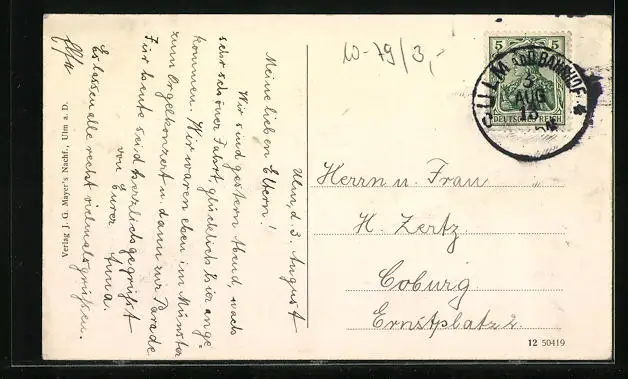 10-79/3,-
5 5
DEUTSCHES REICH
ULM BAHNHOF
3
AUG
13
Ulm, d. 3. August
Meine lieben Eltern!
Wir sind gestern Abend, nach
sehr schöner Fahrt, glücklich hier ange=
kommen. Wir waren eben im Münster
zum Orgelkonzert u. dann zur Parade
Für heute seid herzlich gegrüßt
von Eurer Anna.
Es lassen alle recht vielmals grüßen.
Herrn u. Frau
H. Zertz.
Coburg.
Ernstplatz 2.
Verlag J. G. Mayer's Nachf., Ulm a. D.
12 50419